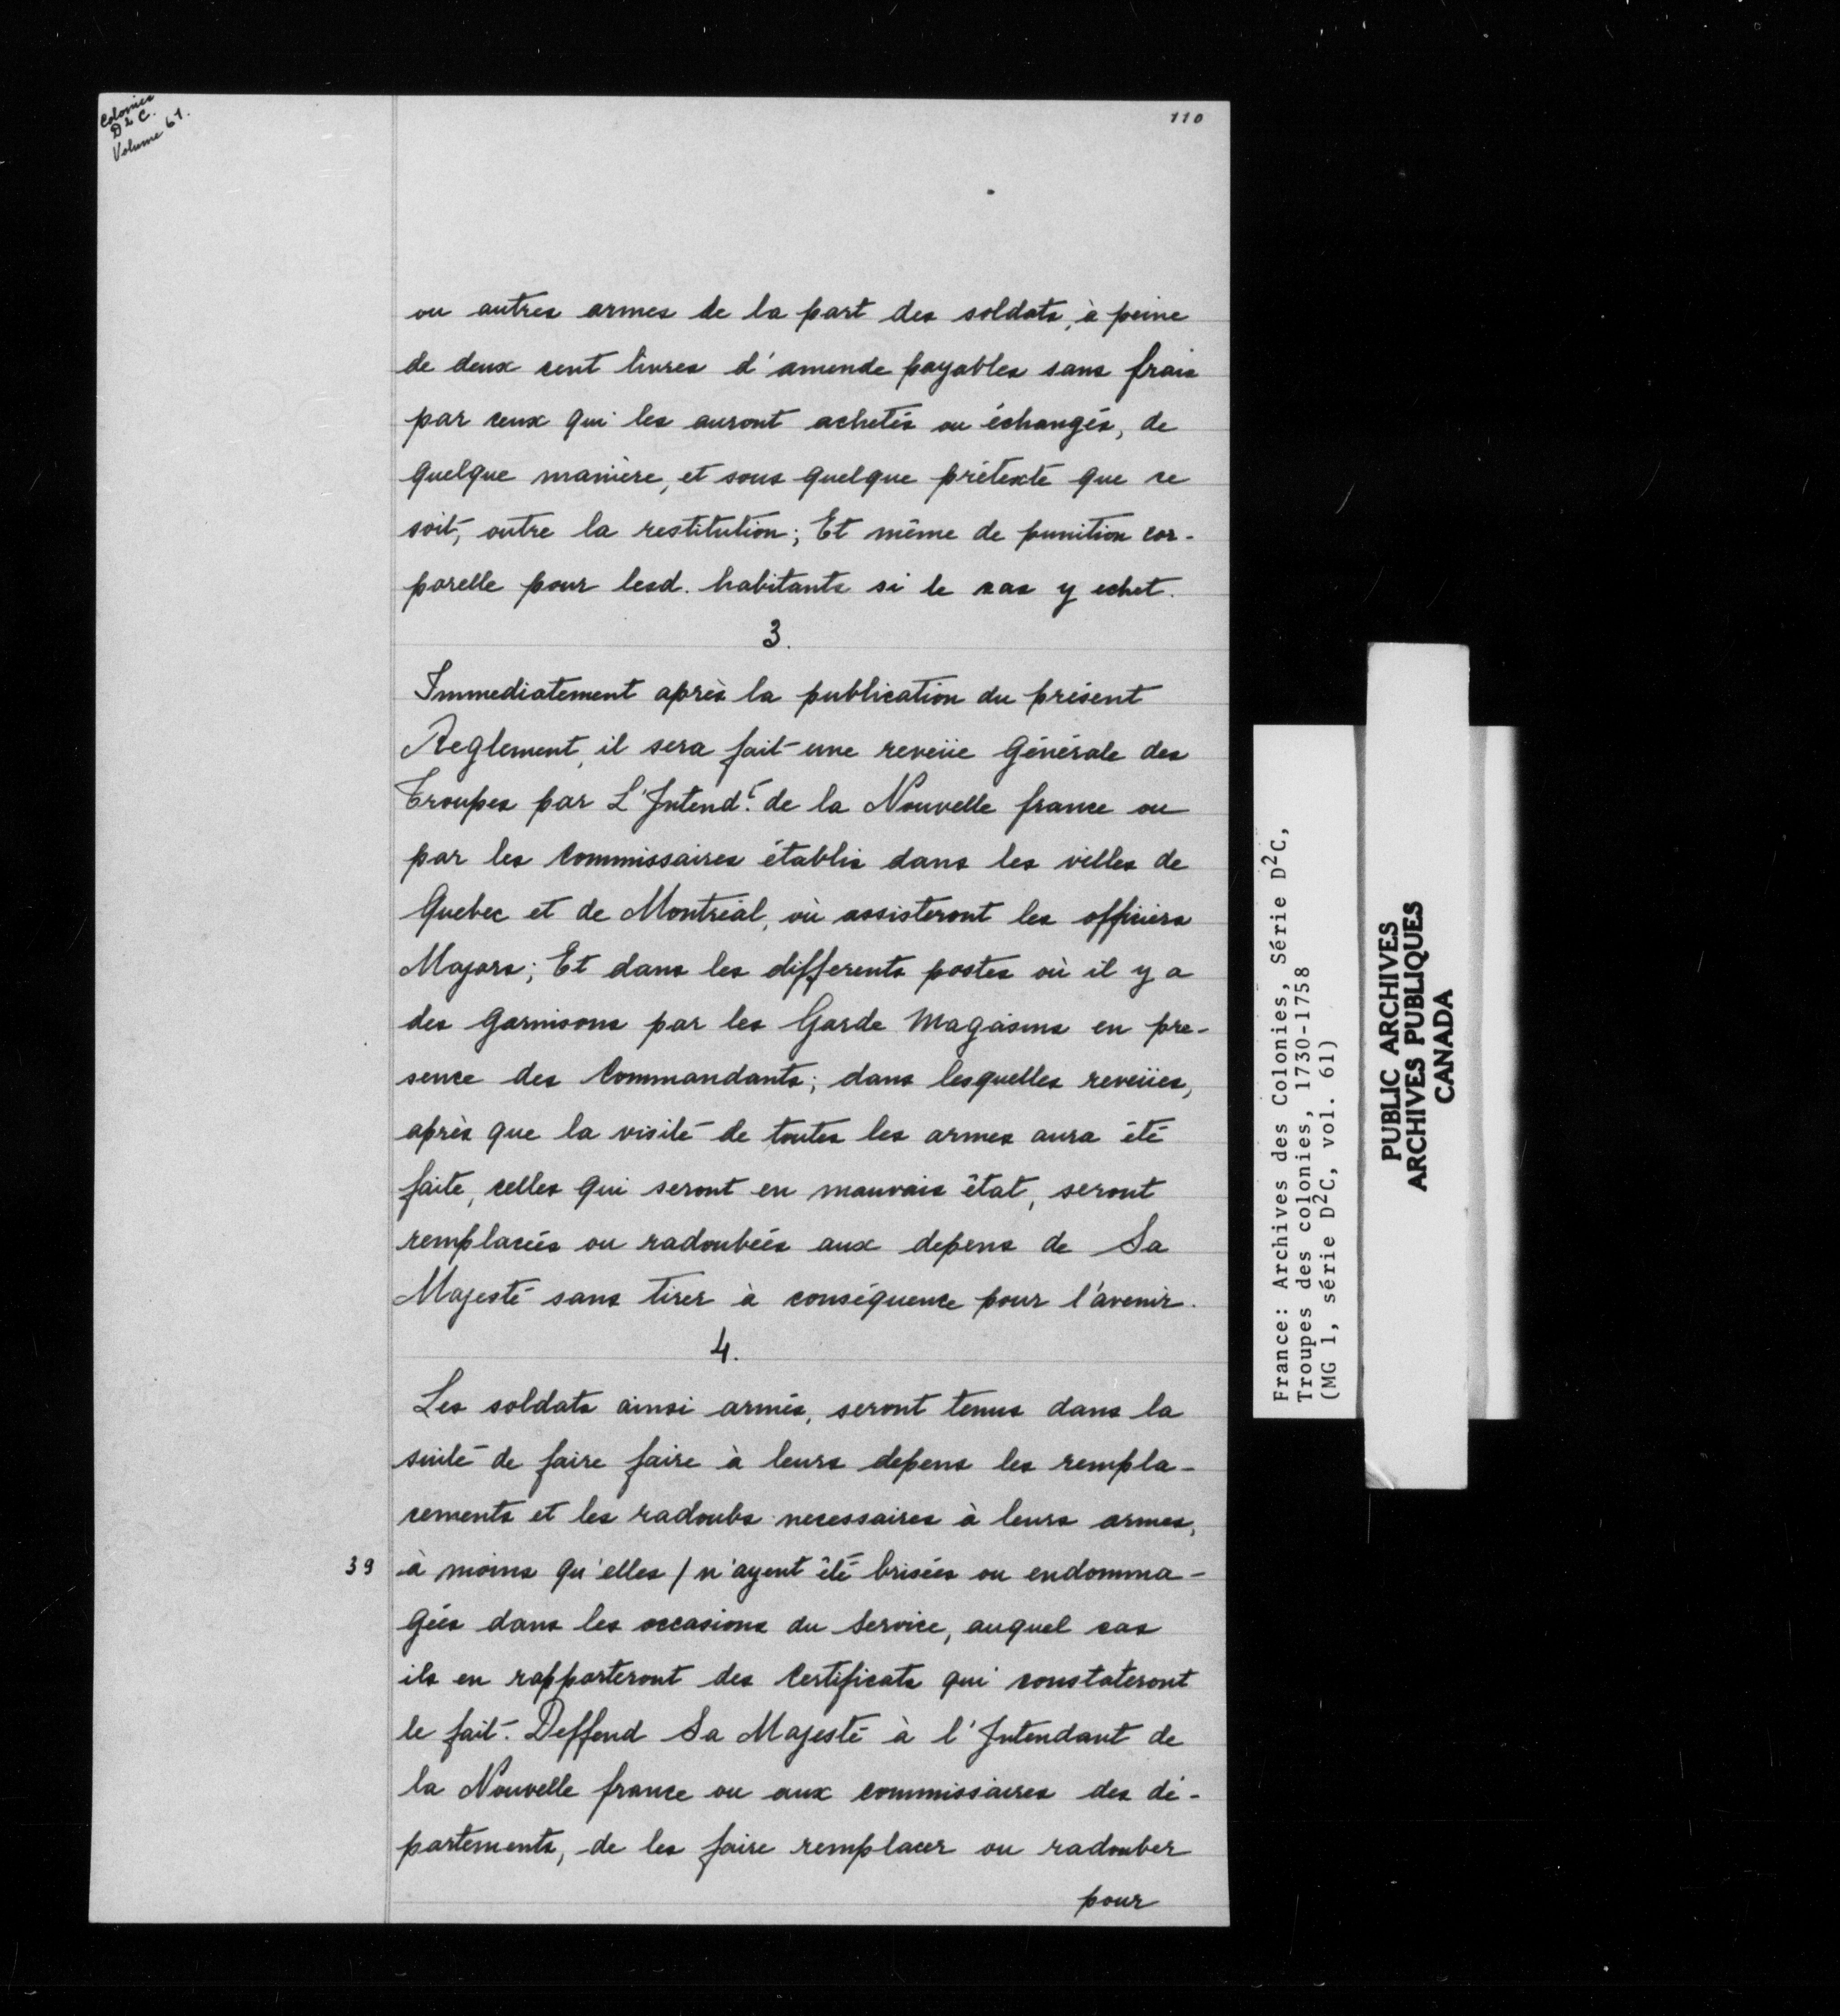 Colonies
D2C.
Volume 61.
110
ou autres armes de la part des soldats, à peine
de deux cent livres d'amende payables sans frais
par ceux qui les auront achetés ou échangés, de
quelque manière, et sous quelque prétexte que ce
soit, outre la restitution; Et même de punition cor-
porelle pour lesd. habitants si le cas y echet.
3.
Immediatement après la publication du présent
Reglement, il sera fait une reveüe Générale des
Troupes par L'Intend.t de la Nouvelle france ou
par les Commissaires établis dans les villes de
Quebec et de Montréal, où assisteront les officiers
Majors; Et dans les differents postes où il y a
des Garnisons par les Garde Magasins en pre-
sence des Commandants; dans lesquelles reveües,
après que la visite de toutes les armes aura été
faite, celles qui seront en mauvais état, seront
remplacées ou radoubées aux depens de Sa
Majesté sans tirer à conséquence pour l'avenir.
4.
Les soldats ainsi armés, seront tenus dans la
suite de faire faire à leurs depens les rempla-
cements et les radoubs necessaires à leurs armes,
39 à moins qu'elles / n'ayent été brisées ou endomma-
gées dans les occasions du Service, auquel cas
ils en rapporteront des Certificats qui constateront
le fait. Deffend Sa Majesté à l'Intendant de
la Nouvelle france ou aux commissaires des dé-
partements, de les faire remplacer ou radouber
pour
France: Archives des Colonies, Série D2C,
Troupes des colonies, 1730-1758
(MG 1, série D2C, vol. 61)
PUBLIC ARCHIVES
ARCHIVES PUBLIQUES
CANADA